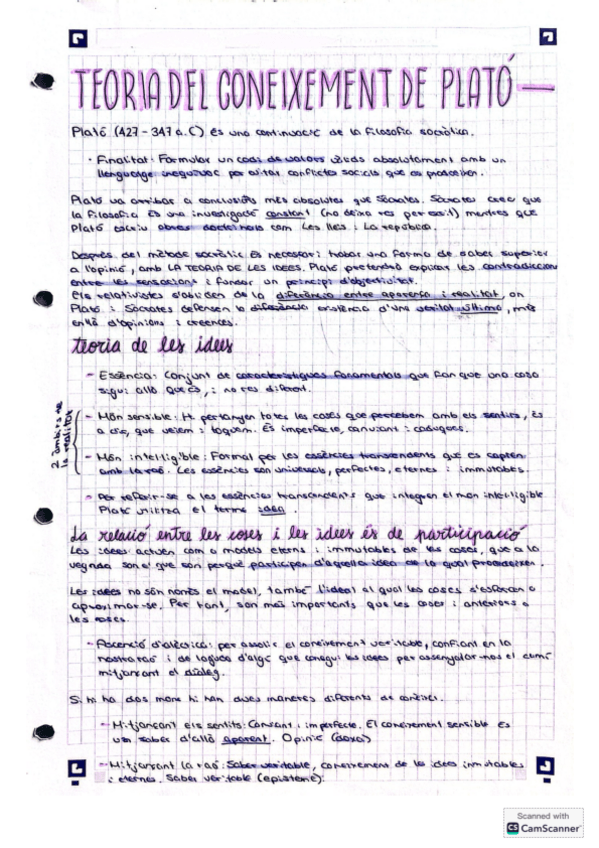 TEORIA DEL CONEIXEMENT DE PLATÓ
Plató (427-347 a.C) és una continuació de la filosofia socràtica.
· Finalitat: Formular un codi de valors vàlids absolutament amb un
llenguatge inequívoc per evitar conflictes socials que es produeixen.
Plató va arribar a conclusions més absolutes que Sòcrates. Sòcrates creu que
la filosofia és una investigació constant (no deixa res per escrit) mentres que
Plató escriu obres doctrinals com Les lleis i La república.
Després del mètode socràtic és necessari trobar una forma de saber superior
a l'opinió, amb LA TEORIA DE LES IDEES. Plató pretendrà explicar les contradiccion
entre les sensacions i fundar un principi d'objectivitat.
Els relativistes s'obliden de la diferència entre aparença i realitat, on
Plató i Sòcrates defensen la diferència existència d'una veritat última, més
enllà d'opinions i creences.
teoria de les idees
- Essència: Conjunt de característiques fonamentals que fan que una cosa
sigui allò que és, i no res diferent.
2 àmbits de
la realitat
- Món sensible: Hi pertanyen totes les coses que percebem amb els sentits, és
a dir, que veiem i toquem. És imperfecte, canviant i caduques.
- Món intel·ligible: Format per les essències transcendents que es capten
amb la raó. Les essències son universals, perfectes, eternes i immutables.
- Per referir-se a les essències transcendents que integren el mon intel·ligible
Plató utilitza el terme idea.
La relació entre les coses i les idees és de participació
Les idees actuen com a models eterns i immutables de les coses, que a la
vegada son el que són perquè participen d'aquella idea de la qual procedeixen.
Les idees no són només el model, també l'ideal al qual les coses s'esforcen a
aproximar-se. Per tant, son més importants que les coses i anteriors a
les coses.
- Ascenció dialèctica: per assolir el coneixement veritable, confiant en la
nostra raó i de l'ajuda d'algú que conegui les idees per assenyalar-nos el camí
mitjançant el diàleg.
Si hi ha dos mons hi han dues maneres diferents de conèixer.
- Mitjançant els sentits: Canviant i imperfecte. El coneixement sensible és
un saber d'allò aparent. Opinió (doxa)
- Mitjançant la raó: Saber veritable, coneixement de les idees immutables
i eternes. Saber veritable (episteme).
Scanned with
CS CamScanner